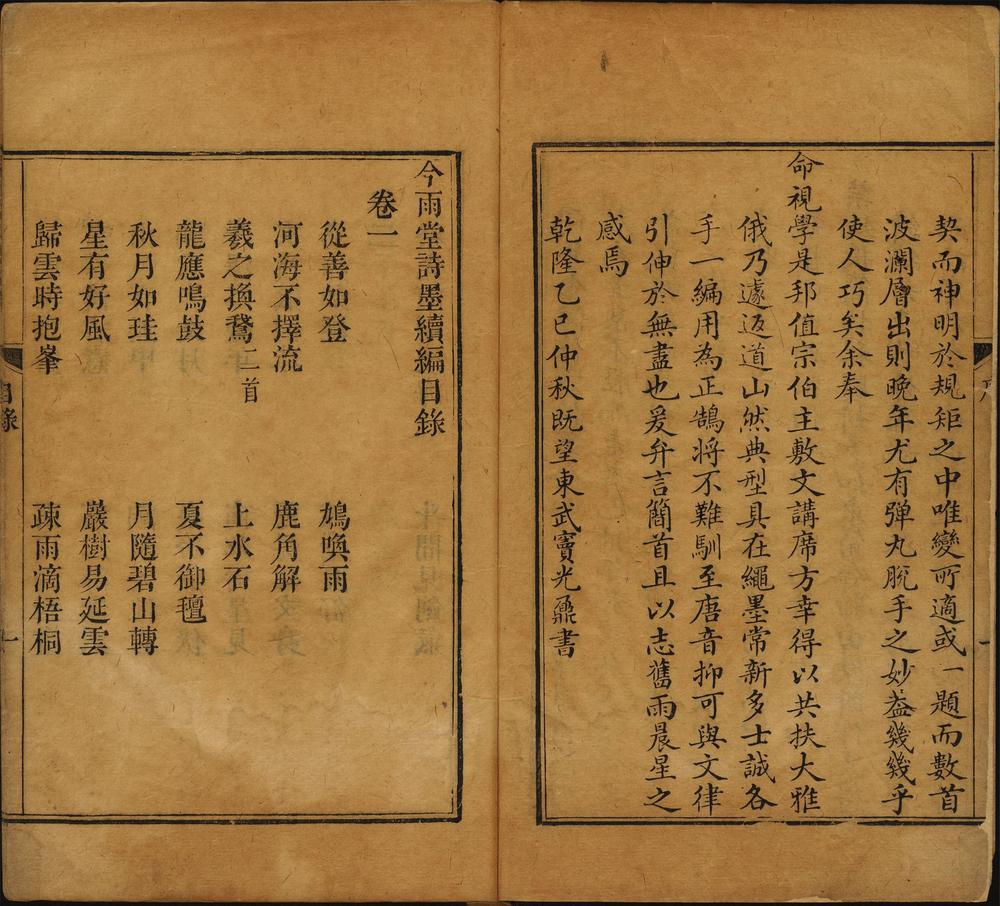 契而神明於規矩之中唯變所適或一題而數首
波瀾層出則晚年尤有彈丸脫手之妙葢幾幾乎
使人巧矣余奉
命視學是邦值宗伯主敷文講席方幸得以共扶大雅
俄乃遽返道山然典型具在繩墨常新多士誠各
手一編用為正鵠將不難馴至唐音抑可與文律
引伸於無盡也爰弁言簡首且以志舊雨晨星之
感焉
乾隆乙巳仲秋既望東武竇光鼐書
今雨堂詩墨續編目錄
卷一
從善如登 鳩喚雨
河海不擇流 鹿角解
羲之換鵞二首 上水石
龍應鳴鼓 夏不御氊
秋月如珪 月隨碧山轉
星有好風 嚴樹易延雲
歸雲時抱峯 疎雨滴梧桐
目錄 一